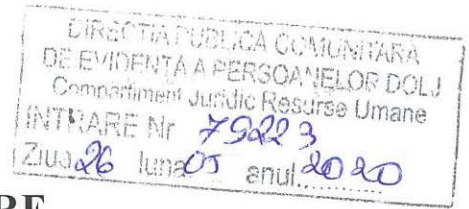 DIRECŢIA PUBLICĂ COMUNITARĂ
DE EVIDENŢĂ A PERSOANELOR DOLJ
Compartiment Juridic Resurse Umane
INTRARE Nr 79223
Ziua 26 luna 05 anul 2020
RE